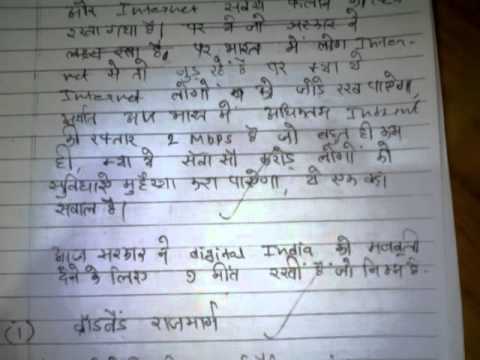 और Internet
रखा गया है। पर ये जो सरकार ने
लक्ष्य रखा है, पर भारत में लोग Inter-
net से तो जुड़ रहे हैं पर क्या ये
Internet लोगों को जोडे रख पाएगा,
भारत में अधिकतम Internet
की रफ्तार 2 Mbps है जो बहुत ही कम
है, क्या ये सेवा सौ करोड़ लोगों को
सुविधाऐं मुहैय्या करा पाएगा, ये एक
सवाल है।
आज सरकार ने Digital India को मजबूती
देने के लिए 9 रखीं है जो निम्न है-
(1) ब्रॉडबैंड राजमार्ग